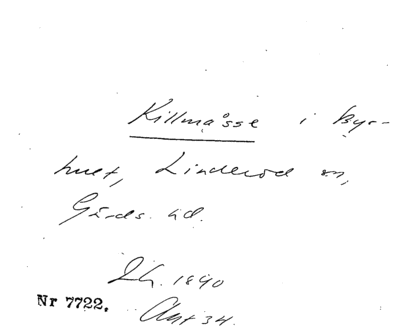 Killmåsse i Byr-
huet, Linderöd sn,
Gärds hd.
1840
Nr 7722.